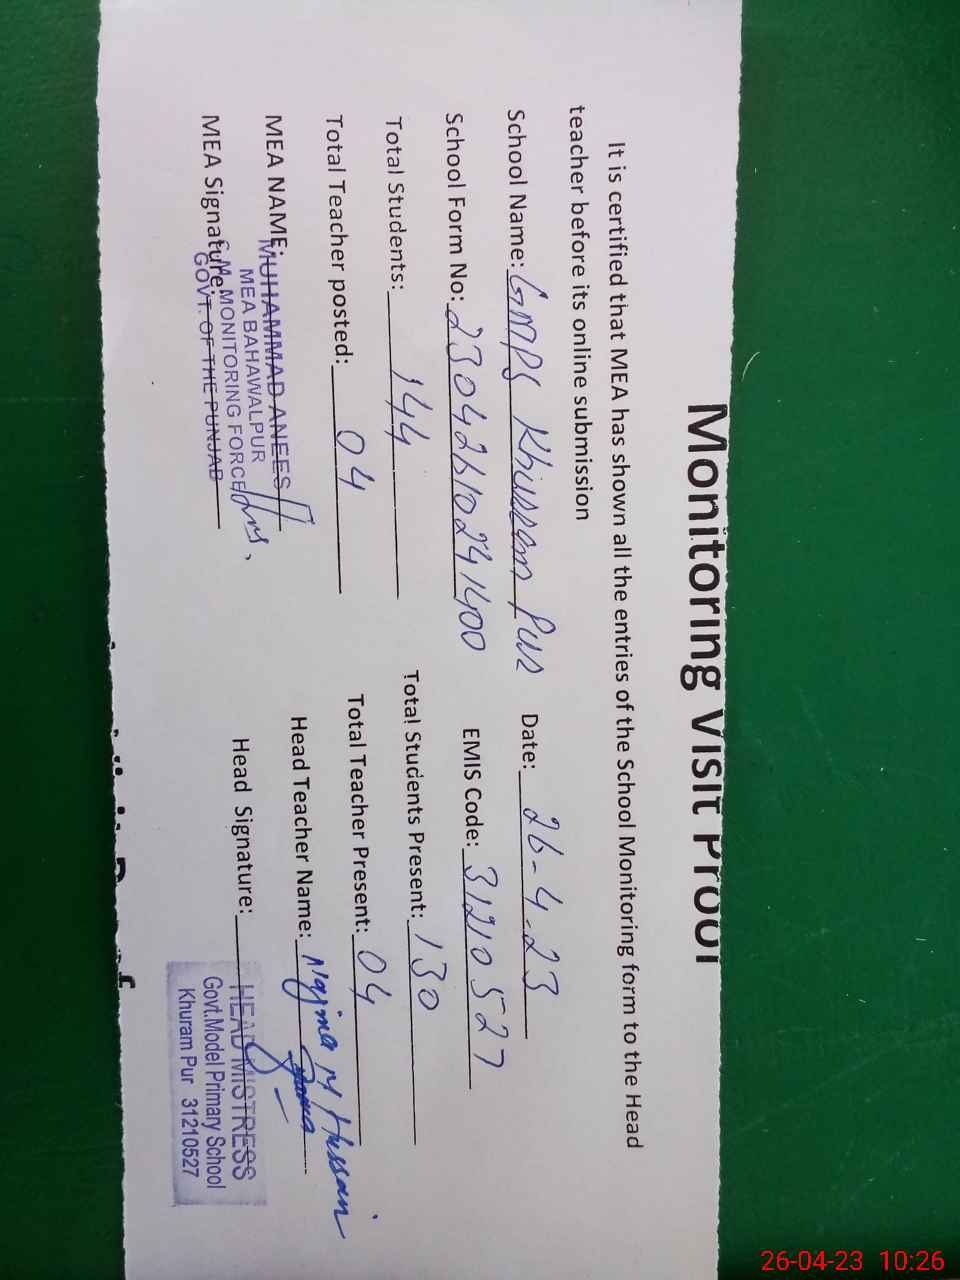 Monitoring Visit Proof
It is certified that MEA has shown all the entries of the School Monitoring form to the Head
teacher before its online submission
School Name: GMPS Khurram Pur Date: 26-4-23
School Form No: 23042610241400 EMIS Code: 31210527
Total Students: 144 Total Students Present: 130
Total Teacher posted: 04 Total Teacher Present: 04
MEA NAME: MUHAMMAD ANEES Head Teacher Name: Najma M Hussain
MEA BAHAWALPUR
C.M. MONITORING FORCE
MEA Signature: GOVT. OF THE PUNJAB Head Signature:
HEAD MISTRESS
Govt.Model Primary School
Khuram Pur 31210527
26-04-23 10:26